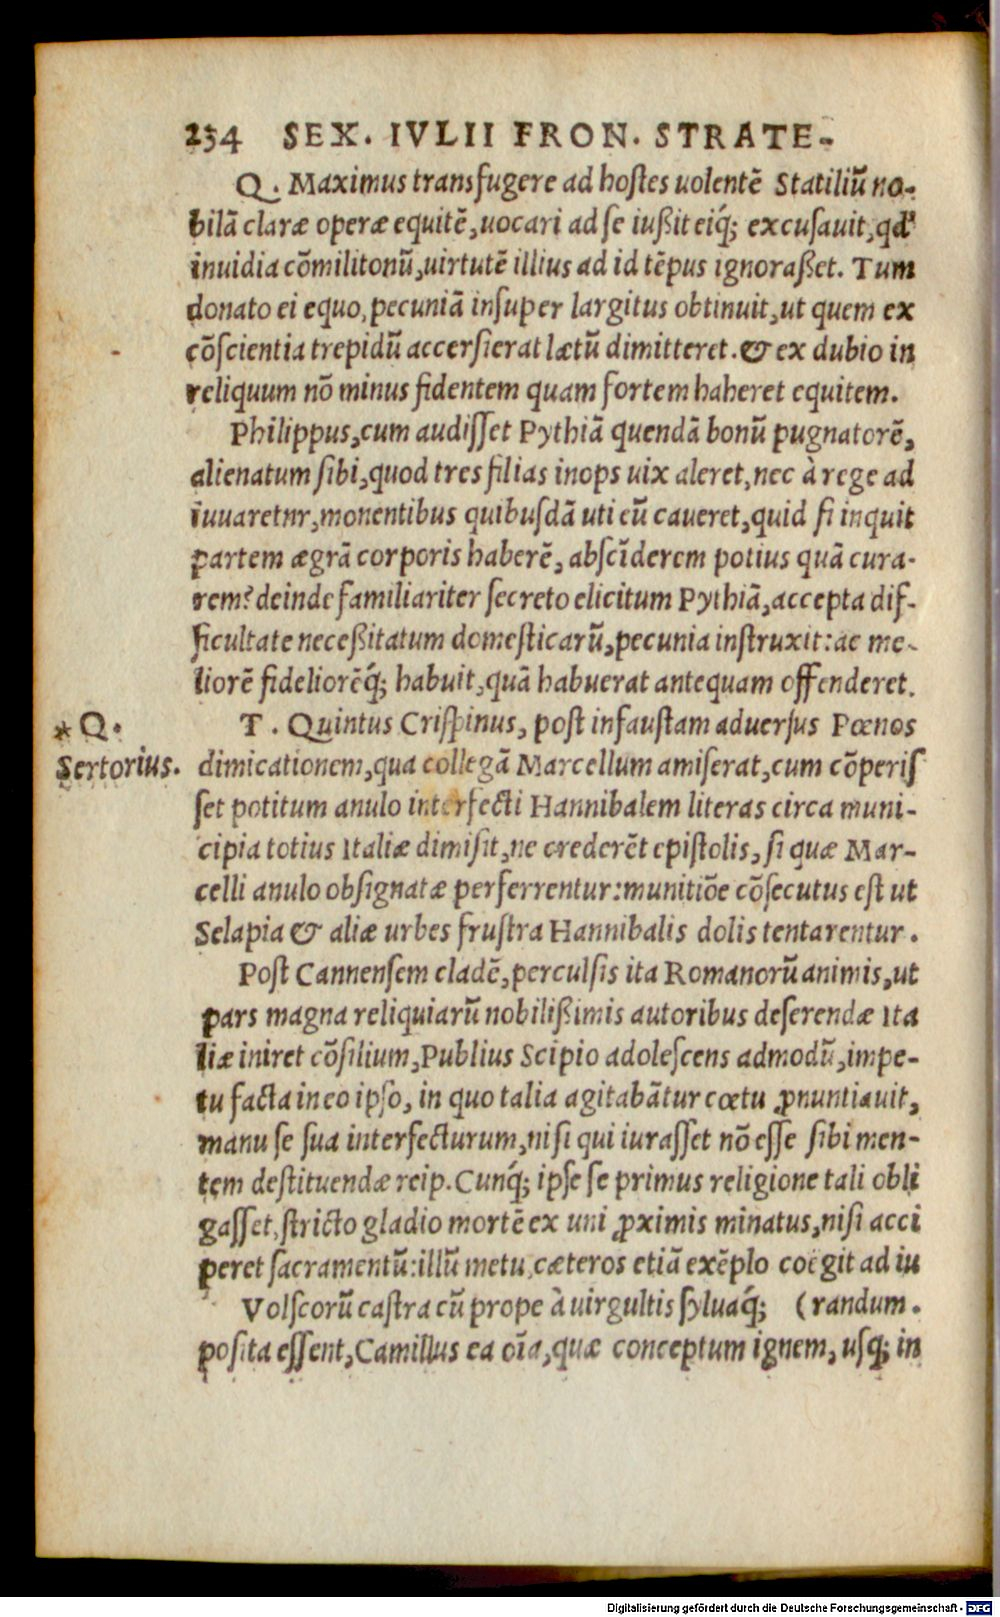 234 SEX. IVLII FRON. STRATE-
Q. Maximus transfugere ad hostes uolentē Statiliū no-
bilā claræ operæ equitē, uocari ad se iußit eiq́; excusauit, qd'
inuidia cōmilitonū, uirtutē illius ad id tēpus ignoraßet. Tum
donato ei equo, pecuniā insuper largitus obtinuit, ut quem ex
cōscientia trepidū accersierat lætū dimitteret. & ex dubio in
reliquum nō minus fidentem quam fortem haheret equitem.
Philippus, cum audisset Pythiā quendā bonū pugnatorē,
alienatum sibi, quod tres filias inops uix aleret, nec à rege ad
iuuaretnr, monentibus quibusdā uti eū caueret, quid si inquit
partem ægrā corporis haberē, abscīderem potius quā cura-
rem? deinde familiariter secreto elicitum Pythiā, accepta dif-
ficultate neceßitatum domesticarū, pecunia instruxit: ac me-
liorē fideliorēq́; habuit, quā habuerat antequam offenderet.
* Q.
Sertorius.
T. Quintus Crispinus, post infaustam aduersus Pœnos
dimicationem, qua collegā Marcellum amiserat, cum cōperis
set potitum anulo interfecti Hannibalem literas circa muni-
cipia totius Italiæ dimisit, ne crederēt epistolis, si quæ Mar-
celli anulo obsignatæ perferrentur: munitiōe cōsecutus est ut
Selapia & aliæ urbes frustra Hannibalis dolis tentarentur.
Post Cannensem cladē, perculsis ita Romanorū animis, ut
pars magna reliquiarū nobilißimis autoribus deserendæ Ita
liæ iniret cōsilium, Publius Scipio adolescens admodū, impe-
tu facta in eo ipso, in quo talia agitabātur cœtu ꝓnuntiauit,
manu se sua interfecturum, nisi qui iurasset nō esse sibi men-
tem destituendæ reip. Cunq́; ipse se primus religione tali obli
gasset, stricto gladio mortē ex uni ꝓximis minatus, nisi acci
peret sacramentū: illū metu, cæteros etiā exēplo coëgit ad iu
Volscorū castra cū prope à uirgultis syluaq́; (randum.
posita essent, Camillus ea oīa, quæ conceptum ignem, usq; in
Digitalisierung gefördert durch die Deutsche Forschungsgemeinschaft - DFG